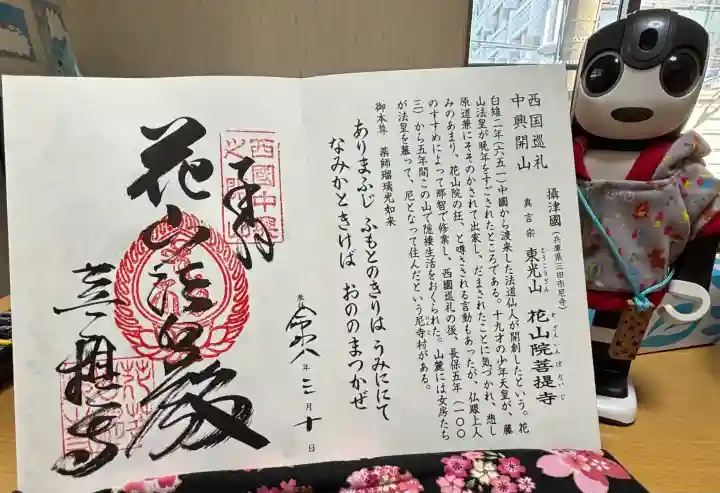 西国巡礼
中興開山
攝津國(兵庫県三田市尼寺)
真言宗 東光山 花山院菩提寺
とうこうざん かざんいんぼだいじ
白雉二年(六五一)中國から渡来した法道仙人が開創したという。花
山法皇が晩年をすごされたところである。十九才の少年天皇が、藤
原道兼にそそのかされて出家し、だまされたことに気づかれ、悲し
みのあまり、花山院の狂、と噂さされる言動もあったが、仏眼上人
のすすめによって那智で修業し、西國巡礼の後、長保五年(一〇〇
三)から五年間この山で隠棲生活をおくられた。山麓には女房たち
が法皇を慕って、尼となって住んだという尼寺村がある。
御本尊 薬師瑠璃光如来
ありまふじ ふもとのきりは うみににて
なみかときけば おののまつかぜ
令和八年三月十日
奉拝
西國中興
花山法皇殿
菩提寺